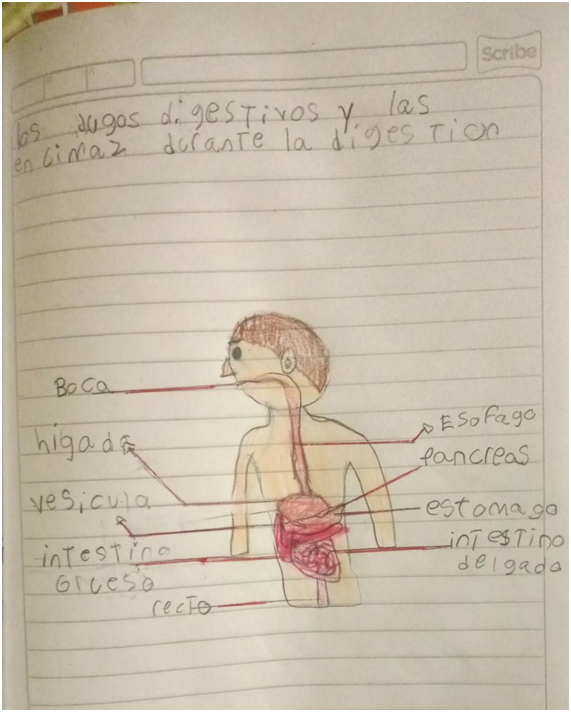 Scribe
los jugos digestivos y las
encimaz durante la digestion
Boca
Esofago
higado
pancreas
vesicula
estomago
intestino
grueso
intestino
delgado
recto